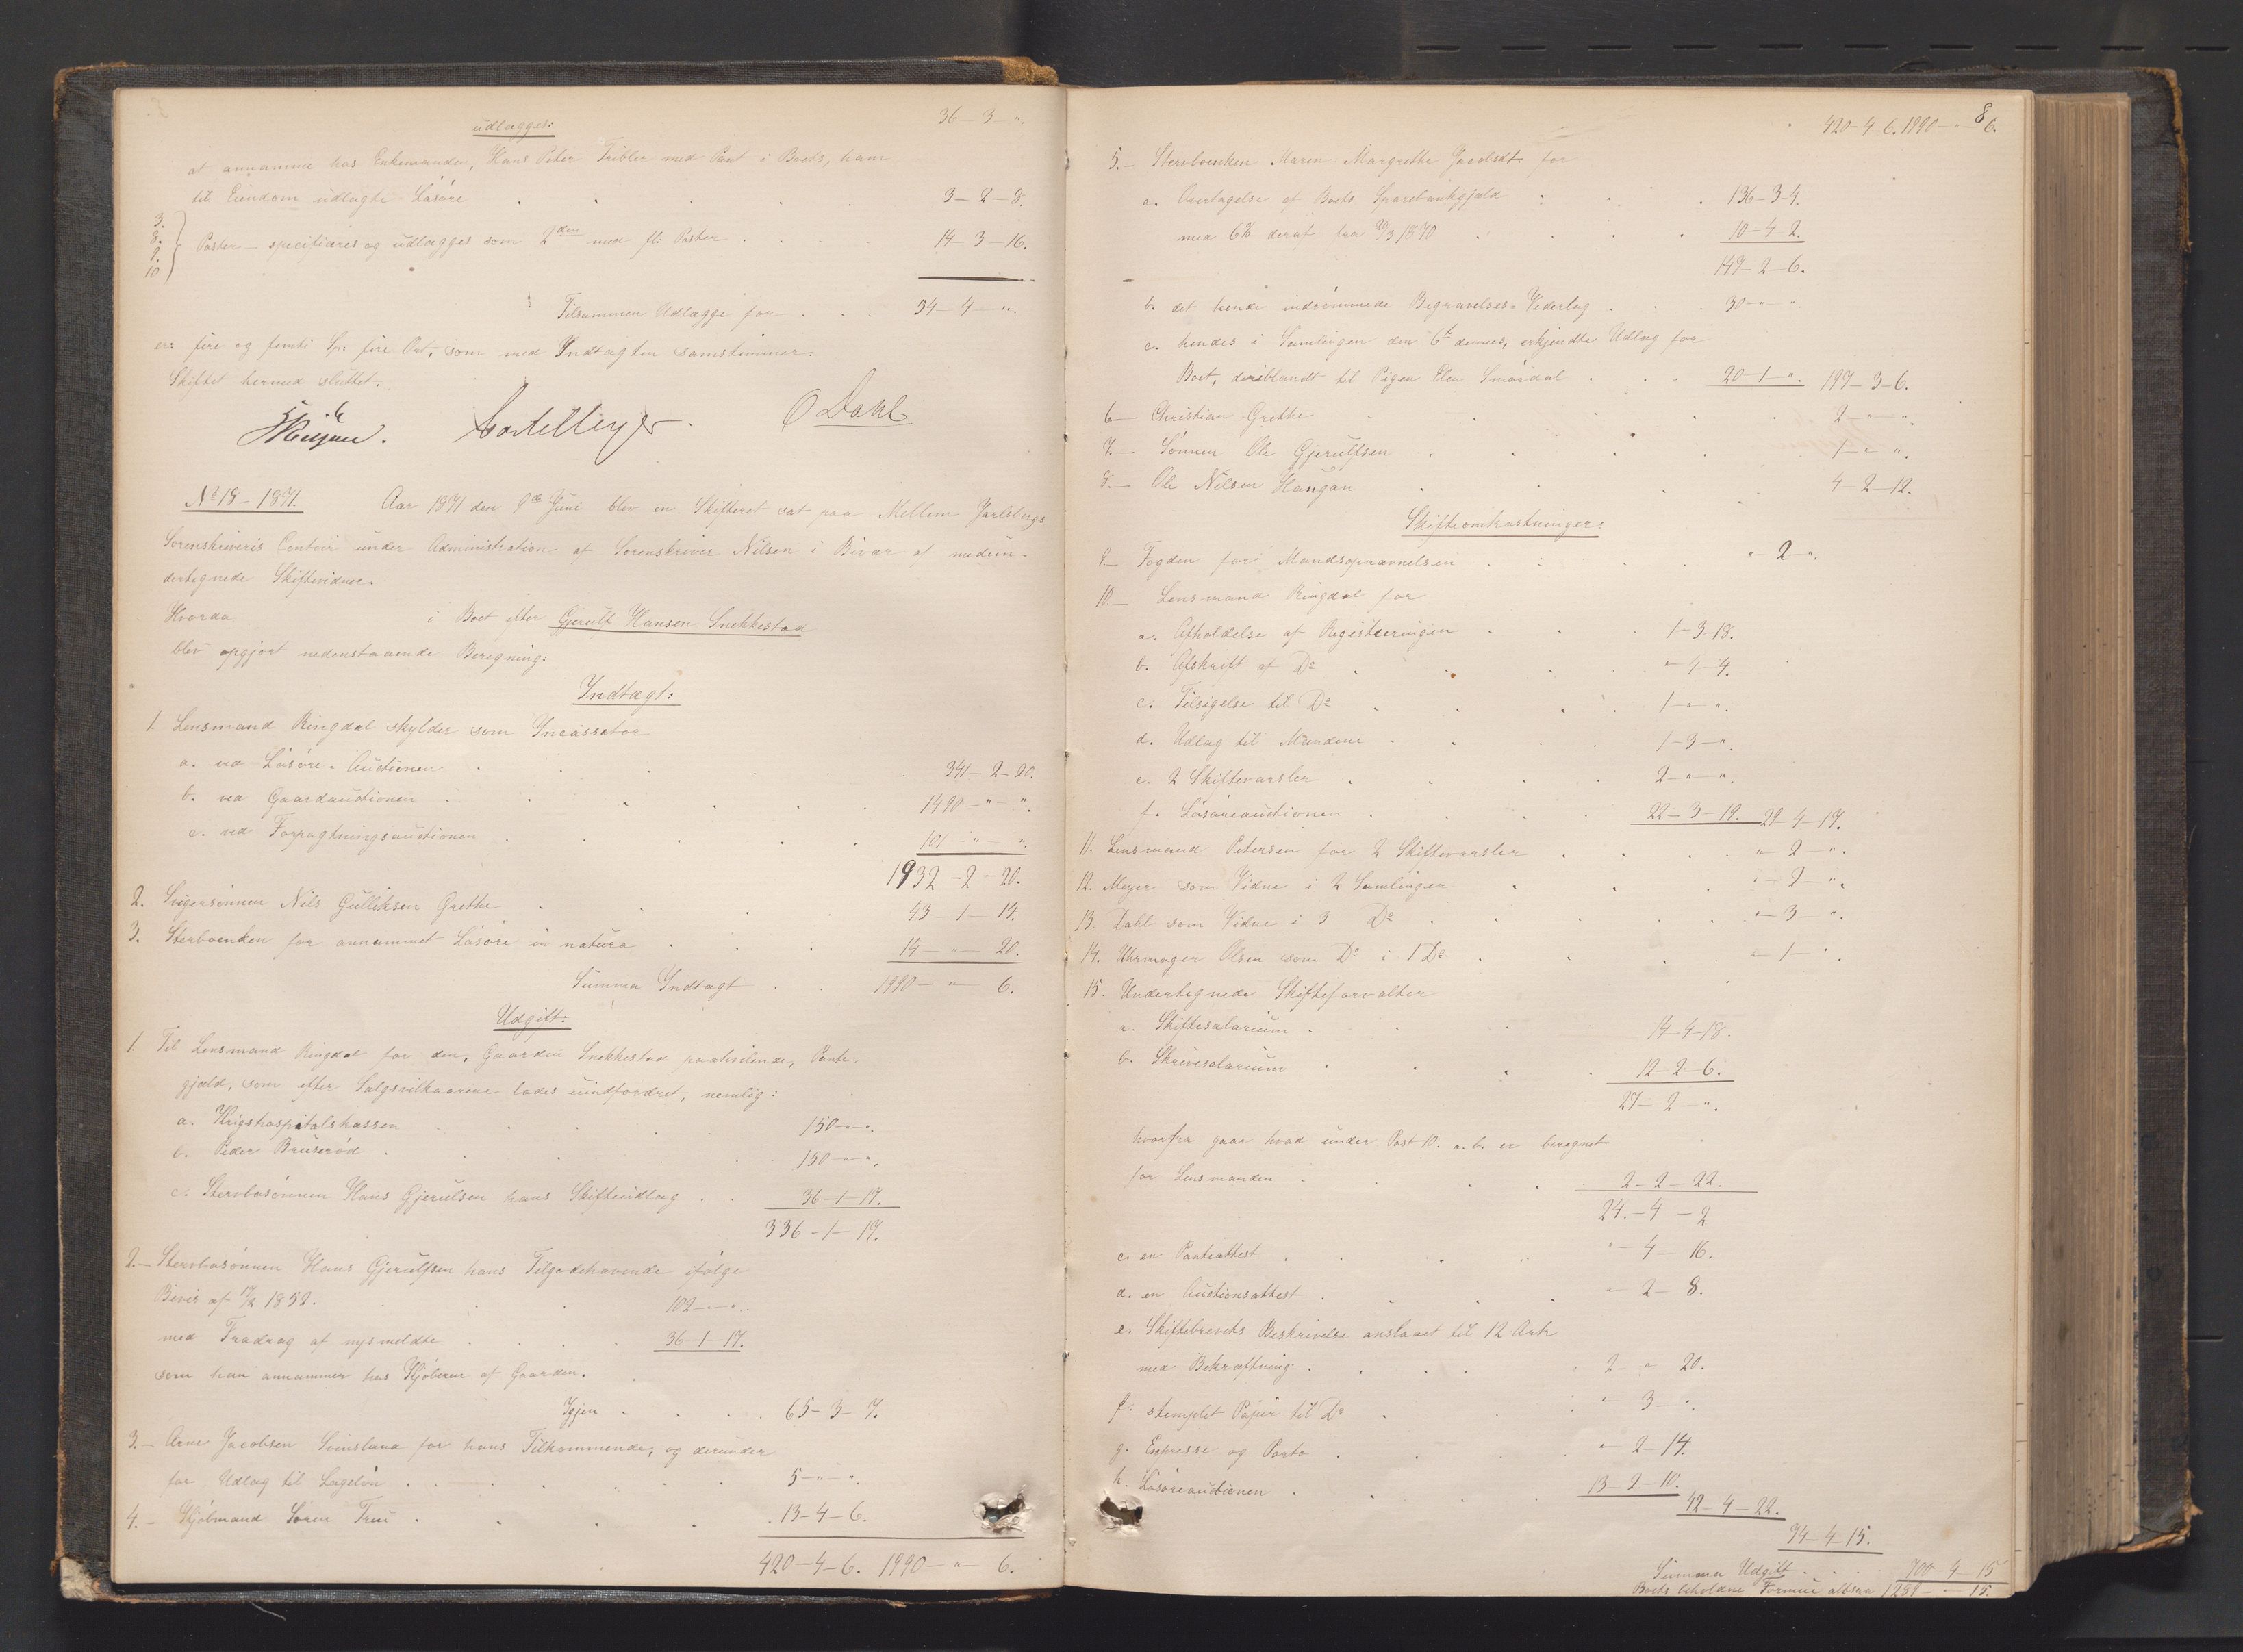 udlægges:
36-3-".
at annamme hos Enkemanden, Hans Peter Tribler med Pant i Boets, ham
til Eiendom udlagte Løsøre . . . . . 3-2-8.
3.
8.
9.
10
Poster - specifiares og udlægges som 2den med fl: Poster . . . . 14-3-16.
Tilsammen Udlægge for . . . 54-4-".
er: fire og femti Sp fire Ort, som med Indtægten samstemmer.
Skiftet hermed sluttet.
Nilsen. Meyer. O Dahl
No 18-1871. Aar 1871 den 9de Juni blev en Skifteret sat paa Mellem Jarlsbergs
Sorenskriveris Contoir under Administration af Sorenskriver Nilsen i Bivær af medun-
dertegnede Skiftevidner.
Hvorda i Boet efter Gjerulf Hansen Snekkestad
blev opgjort nedenstaaende Beregning:
Indtægt:
1. Lensmand Ringdal skylder som Incassator
a. ved Løsøre-Auctionen . . . . . 341-2-20.
b. ved Gaardauctionen . . . . . 1490-"-".
c. ved Forpagtningsauctionen . . . . . 101-"-".
1932-2-20.
2. Svigersønnen Nils Gulliksen Grette . . . . 43-1-14.
3. Sterboenken for annammet Løsøre in natura . . . 14-"-20.
Summa Indtægt . . 1990-"-6.
Udgift:
1. Til Lensmand Ringdal for den, Gaarden Snekkestad paahvilende, Pante-
gjæld, som efter Salgsvilkaarene lades uindfordret, nemlig:
a. Krigshospitalskassen . . . . 150-"-".
b. Peder Bruserød . . . . 150-"-".
c. Stervbosønnen Hans Gjerulsen hans Skifteudlæg . . 36-1-17.
336-1-17.
2.- Stervbosønnen Hans Gjerulfsen hans Tilgodehavende ifølge
Bevis af 1852. . . . 102-"-".
med Fradrag af nysmeldte . . . . 36-1-17.
som han annammer hos Kjøberen af Gaarden.
Igjen . . . . 65-3-7.
3.- Arne Jacobsen Svinsland for hans Tilkommende, og derunder
for Udlæg til Lægeløn . . . . . 5-"-".
4.- Kjøbmand Søren Tru . . . . 13-4-6.
420-4-6. 1990-"-6.
8
420-4-6. 1990-"-6.
5.- Stervboenken Maren Margrethe Jacobsdt. for
a. Overtagelse af Boets Sparebankgjæld . . . 136-3-4.
med 6% deraf fra 20/3 1870 . . . . 10-4-2.
147-2-6.
b. det hende indrømmede Begravelses-Vederlag . . . 30-"-".
c. hendes i Samlingen den 6te dennes, erkjendte Udlæg for
Boet, deriblandt til Pigen Elen Smørdal . . . 20-1-". 197-3-6.
6- Christian Grette . . . . 2-"-".
7.- Sønnen Ole Gjerulfsen . . . . 1-"-".
8.- Ole Nilsen Haugan . . . . 4-2-12.
Skifteomkostninger:
9.- Fogden for Mandsopnævnelsen . . . . "-2-".
10.- Lensmand Ringdal for
a. Afholdelse af Registreringen . . . 1-3-18.
b. Afskrift af Do . . . . "-4-4.
c. Tilsigelse til Do . . . . 1-"-".
d. Udlæg til Mændene . . . . 1-3-".
e. 2 Skiftevarsler . . . . 2-"-".
f. Løsøreauctionen . . . . 22-3-19. 29-4-17.
11. Lensmand Petersen for 2 Skiftevarsler . . . . "-2-".
12. Meyer som Vidne i 2 Samlinger . . . . "-2-".
13. Dahl som Vidne i 3 Do . . . . "-3-".
14. Uhrmager Olsen som Do i 1 Do . . . . "-1-".
15. Undertegnede Skifteforvalter
a. Skiftesalarium . . . 14-4-18.
b. Skrivesalarium . . . . 12-2-6.
27-2-".
hvorfra gaar hvad under Post 10. a.b. er beregnet
for Lensmanden . . . . 2-2-22.
24.-4-2
c. en Panteattest . . . . "-4-16.
d. en Auctionsattest . . . . "-2-8.
e. Skiftebrevets Beskrivelse anslaaet til 12 Ark
med Bekræftning . . . . . 2-"-20.
f. stemplet Papir til Do . . . "-3-".
g. Expresse og Porto . . . . "-2-14.
h. Løsøreauctionen . . . . 13-2-10.
42-4-22.
74-4-15.
Summa Udgift . . . . 700-4-15
Boets beholdne Formue altsaa 1289-"-15.